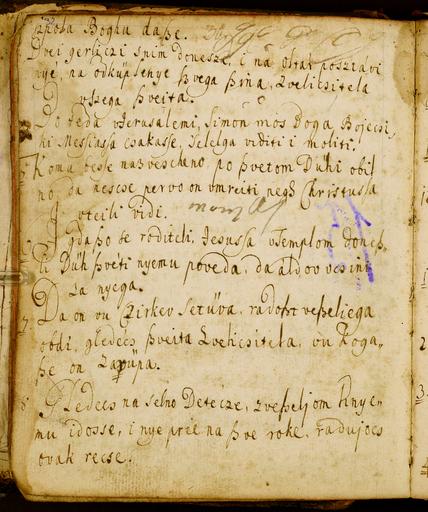 zpoba Boghu daße.
Dvei gerliczi snim donesze, i na Oltar posztavi
nye, na odküplenye ßvega ßina, Zvelicsitela
vszega ßveita.
Bo teda vJerusalemi, Simon mos Boga Bojecsi,
ki Messiassa csakasse, selelga viditi i moliti.
Komu besse nazvescheno, po ßvetom Duhi obil
no, da nescse pervo on vmreiti nego Christussa
vteili vidi.
I gda ßo ße roditeli, Jesussa vTemplom doneß
li Duh ßveti nyemu poveda, da aldov vcsini
za nyega.
Da on vu Czirkev setüva, radoßt veßeliega
obdi, gledecs ßveita Zvelicsitela, vu koga,
ße on zaupa.
8. Gledecs na selno Detecze, zveßeljom knye,
mu idosse, i nye prie na ßve roke, radujocs
ovak recse.